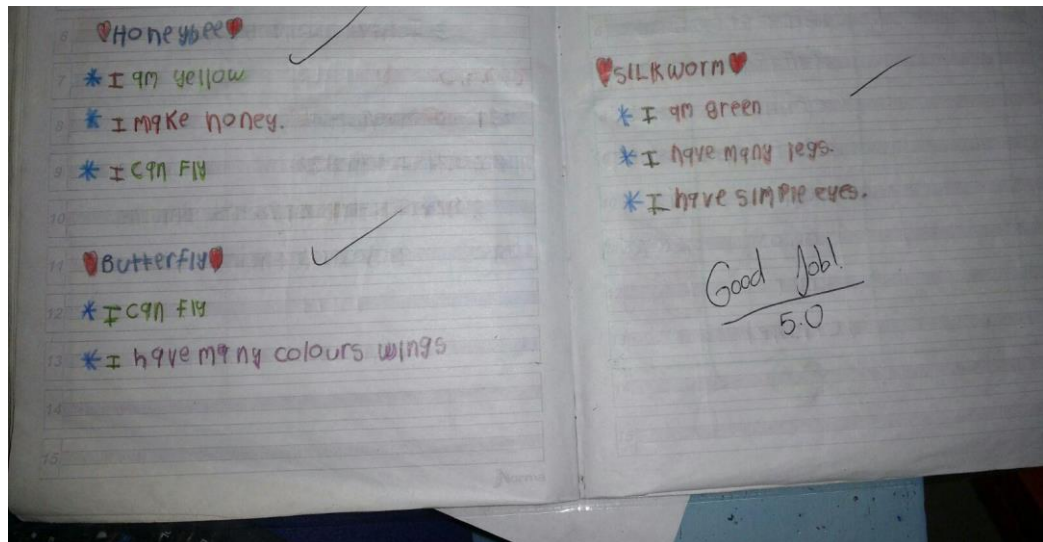 Honeybee
* I am yellow
* I make honey.
* I can Fly
Butterfly
* I can fly
* I have many colours wings
SILKworm
* I am green
* I have many legs.
* I have simple eyes.
Good Job!
5.0
6
7
8
9
10
11
12
13
14
15
Norma